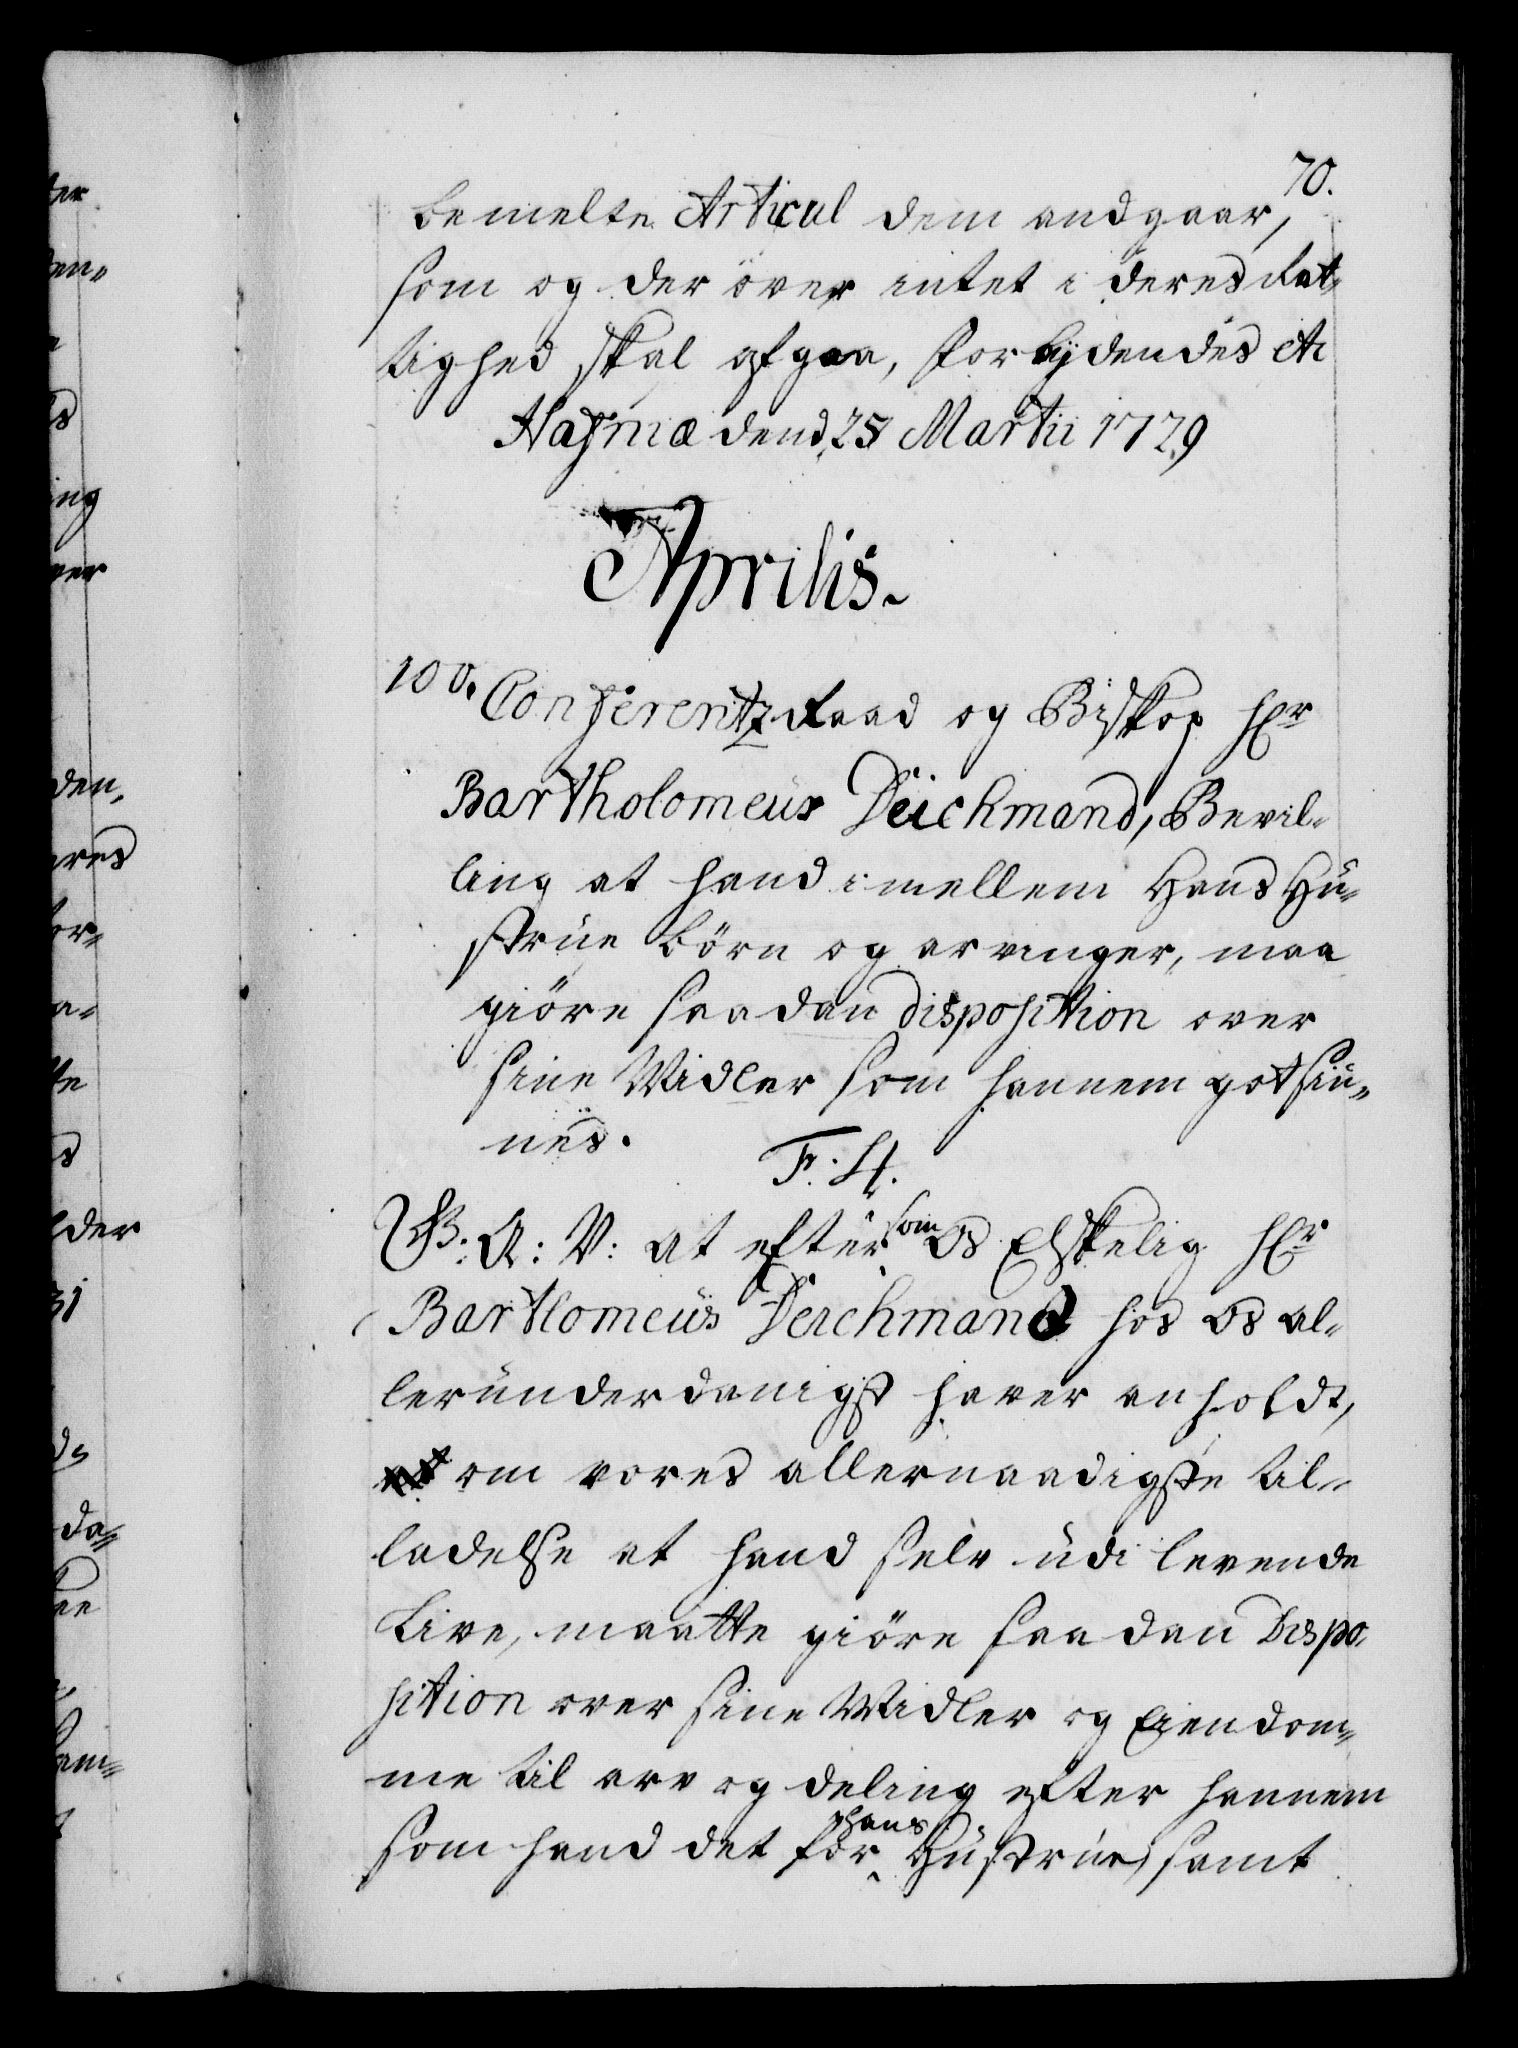 70.
bemelte Articul dem andgaar,
som og der över intet i deres Ret-
tighed skal afgaa, Forbydendes etc
Hafniæ dend 25 Martii 1729
Aprilis.
100. Conferentz Raad og Biskop Hr
Bartholomeus Deichmand, Bevil-
ling at hand imellem Hans Hu-
strüe börn og arvinger, maa
giöre saadan disposition over
sine Midler som hannem got siu-
nes.
F. 4.
G: A: V: at efter som Os Elskelig Hr
Bartlomeüs Deichmand hos Os al-
leründerdanigst haver anholdt,
om vores allernaadigste til-
ladelse at hand selv üdi levende
Live, maatte giöre saadan Dispo-
sition over sine Midler og Eiendom-
me til arv og deling efter hannem
som hand det for hans Hüstrüe, samt
ter
den,
ares
for-
a-
te
der
31
da-